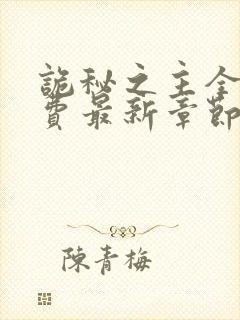 詭秘之主全
費最新章節
陳青梅